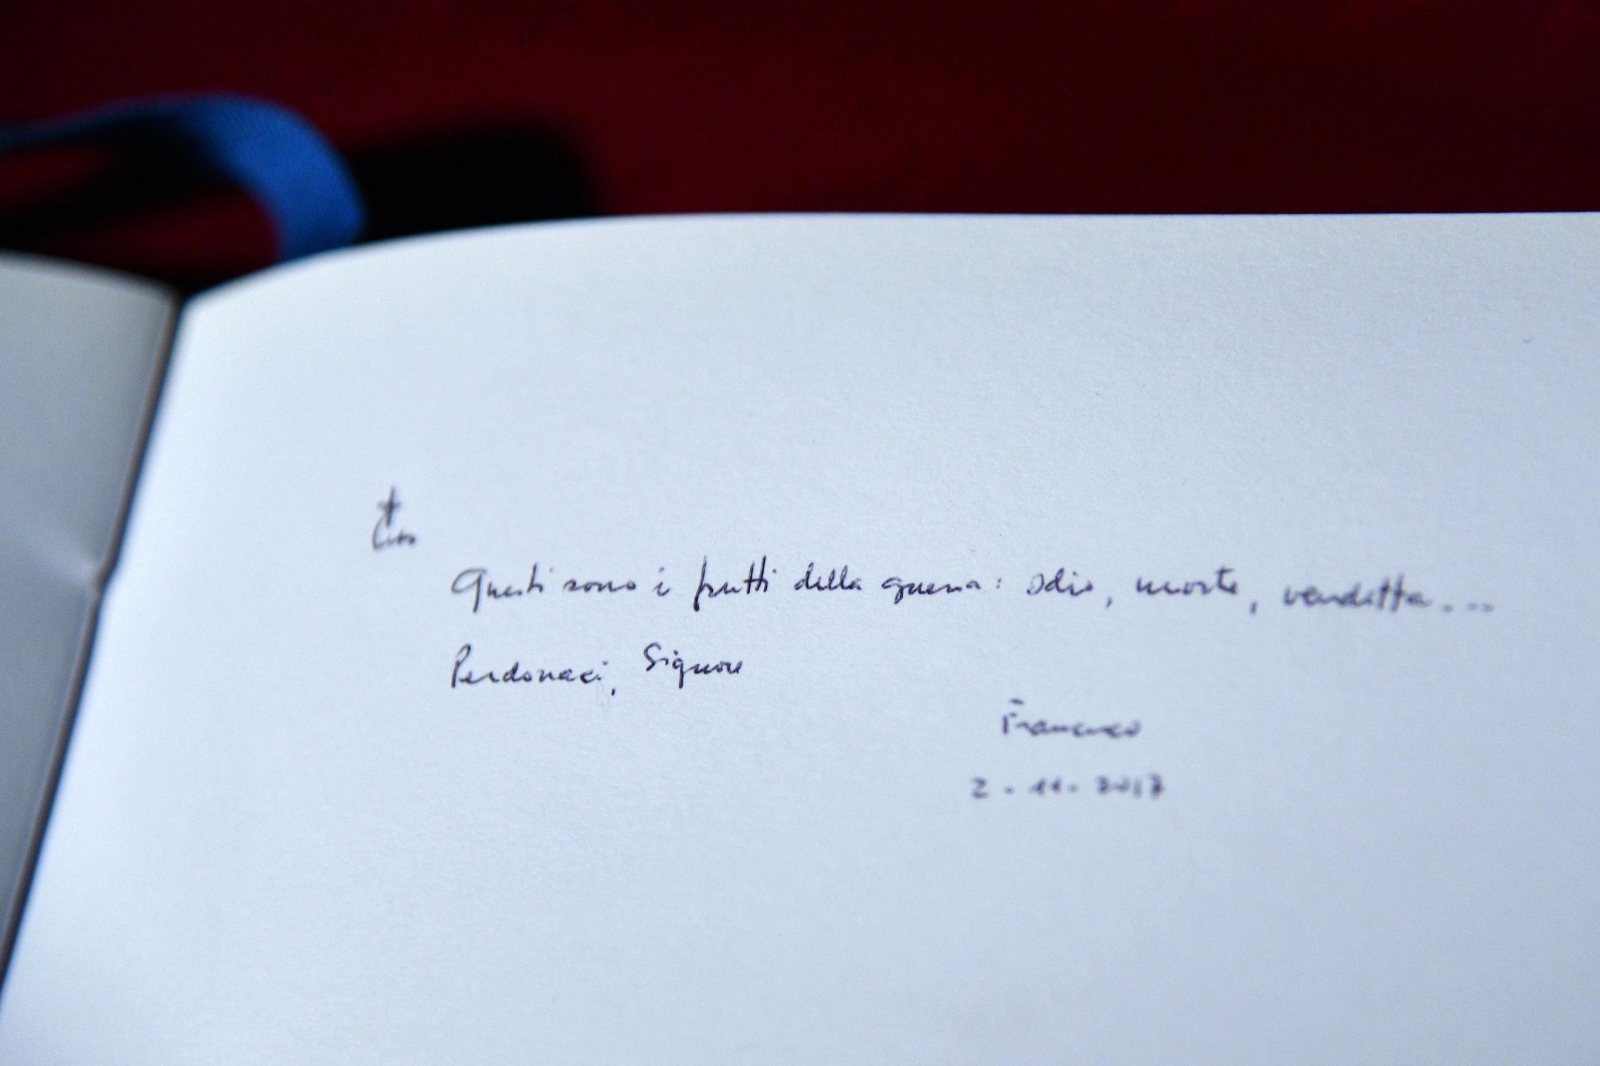 †
Questi sono i frutti della guerra: odio, morte, vendetta....
Perdonaci, Signore
Francesco
2-11-2017